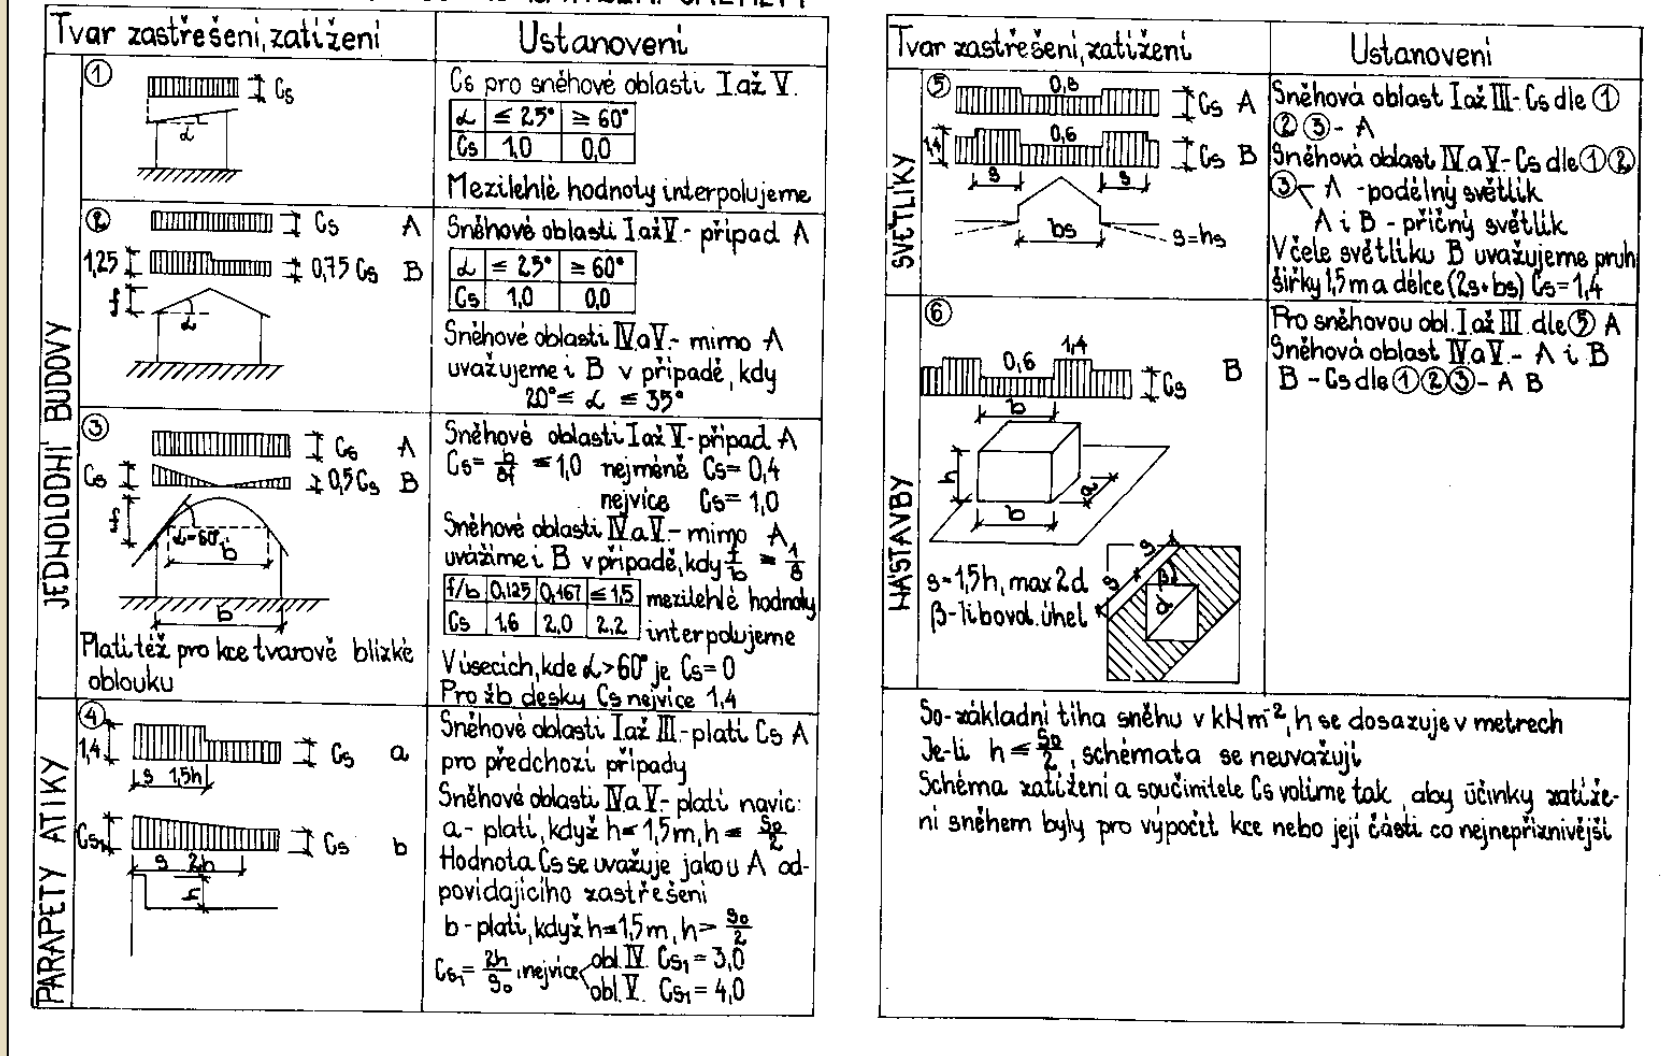 Tvar zastřešení, zatížení
Ustanovení
JEDNOLODNÍ BUDOVY
1
Cs
α
Cs pro sněhové oblasti I. až V.
α ≤ 25° ≥ 60°
Cs 1,0 0,0
Mezilehlé hodnoty interpolujeme
2
Cs A
1,25 0,75 Cs B
f
α
Sněhové oblasti I až V. - případ A
α ≤ 25° ≥ 60°
Cs 1,0 0,0
Sněhové oblasti IV. a V. - mimo A
uvažujeme i B v případě, kdy
20° ≤ α ≤ 35°
3
Cs A
Cs 0,5 Cs B
f
α=60°
b
b
Platí též pro kce tvarově blízké
oblouku
Sněhové oblasti I. až V - případ A
Cs = b/8f ≤ 1,0 nejméně Cs = 0,4
nejvíce Cs = 1,0
Sněhové oblasti IV. a V. - mimo A
uvážíme i B v případě, kdy f/b ≥ 1/8
f/b 0,125 0,167 ≤ 1,5
Cs 1,6 2,0 2,2
mezilehlé hodnoty
interpolujeme
V úsecích, kde α > 60° je Cs = 0
Pro žb desky Cs nejvíce 1,4
PARAPETY ATIKY
4
1,4 Cs a
s 1,5h
Cs₁ Cs b
s 2h
h
Sněhové oblasti I až III - platí Cs A
pro předchozí případy
Sněhové oblasti IV a V - platí navíc:
a - platí, když h ≤ 1,5 m, h ≤ So/2
Hodnota Cs se uvažuje jako u A od-
povídajícího zastřešení
b - platí, když h ≤ 1,5 m, h > So/2
Cs₁ = 2h/So, nejvíce obl. IV. Cs₁ = 3,0
obl. V. Cs₁ = 4,0
Tvar zastřešení, zatížení
Ustanovení
SVĚTLÍKY
5
0,8
Cs A
1,4 0,6 Cs B
s s
bs
s=hs
Sněhová oblast I až III - Cs dle 1
2 3 - A
Sněhová oblast IV a V - Cs dle 1 2
3 A - podélný světlík
A i B - příčný světlík
V čele světlíku B uvažujeme pruh
šířky 1,5 m a délce (2s+bs) Cs = 1,4
NÁSTAVBY
6
1,4
0,6
Cs B
b
h
a
b
s=1,5h, max 2d
β - libovol. úhel
s
s
β
d
Pro sněhovou obl. I až III. dle 5 A
Sněhová oblast IV a V. - A i B
B - Cs dle 1 2 3 - A B
So - základní tíha sněhu v kNm⁻², h se dosazuje v metrech
Je-li h ≤ So/2, schémata se neuvažují
Schéma zatížení a součinitele Cs volíme tak, aby účinky zatíže-
ní sněhem byly pro výpočet kce nebo její části co nejnepříznivější